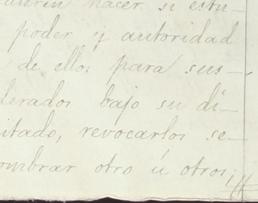 hacer si estu-
poder y autoridad
de ellos para sus-
derados bajo su di-
itado, revocarlos se-
ombrar otro ú otros,